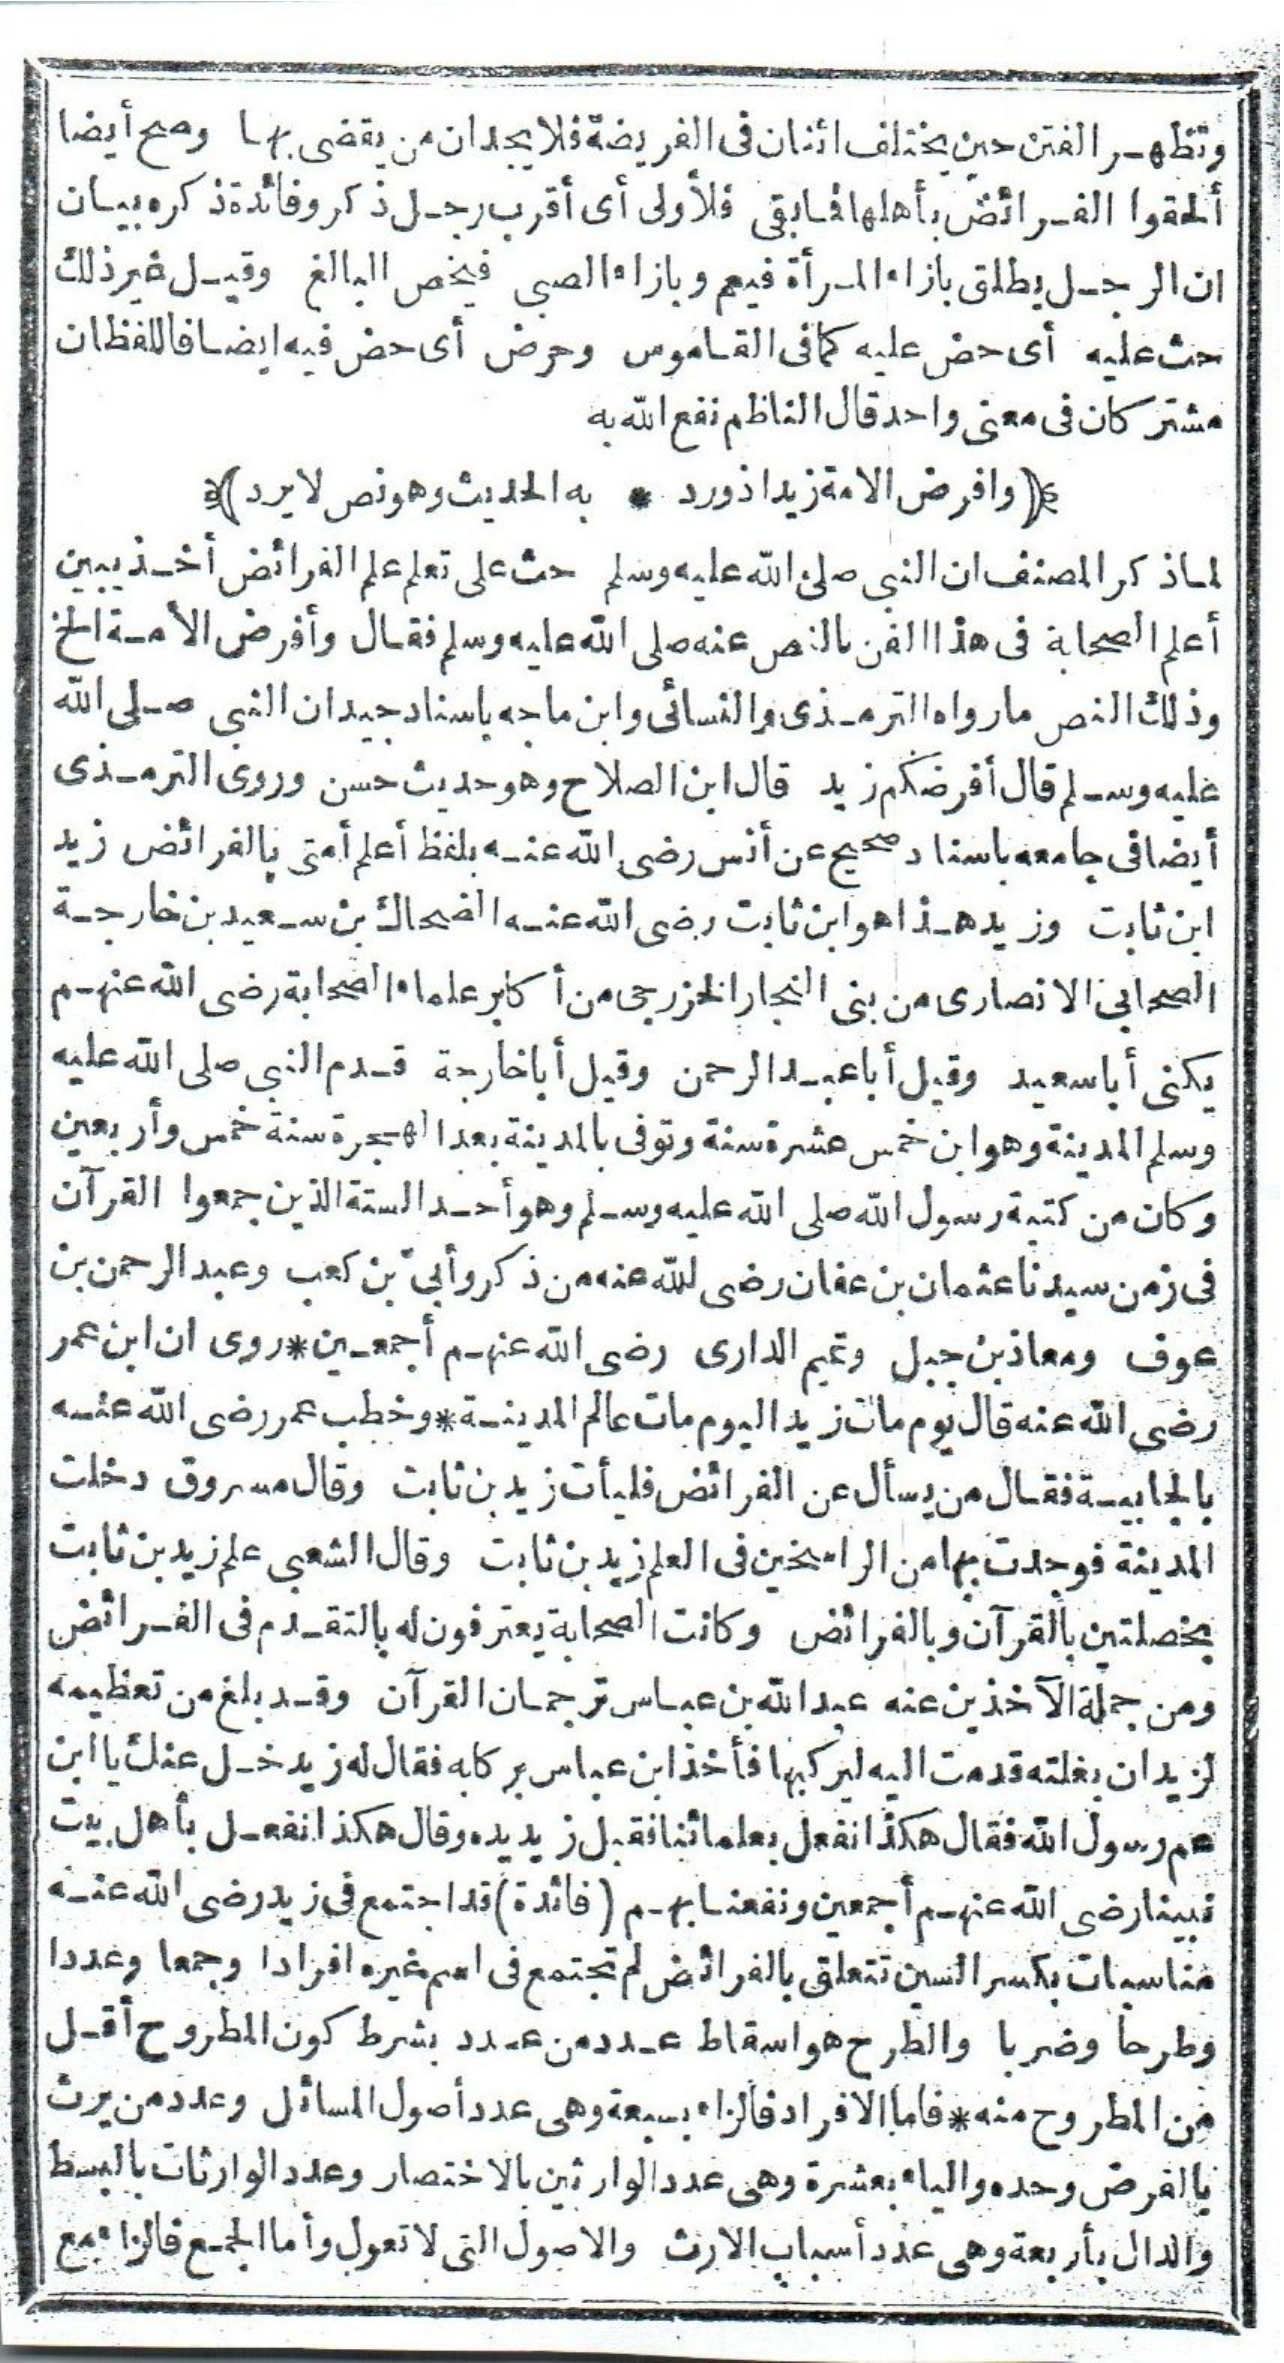 وتظهر الفتن حين يختلف اثنان فى الفريضة فلا يجدان من يقضى بها وصح أيضا
ألحقوا الفرائض بأهلها فما بقى فلأولى أى أقرب رجل ذكر وفائدة ذكره بيان
ان الرجل يطلق بازاء المرأة فيعم وبازاء الصبى فيخص البالغ وقيل غير ذلك
حث عليه أى حض عليه كما فى القاموس وحرض أى حض فيه ايضا فاللفظان
مشتركان فى معنى واحد قال الناظم نفع الله به
﴿(وافرض الامة زيد اذ ورد * به الحديث وهو نص لا يرد)﴾
لما ذكر المصنف ان النبى صلى الله عليه وسلم حث على تعلم علم الفرائض أخذ يبين
أعلم الصحابة فى هذا الفن بالنص عنه صلى الله عليه وسلم فقال وأفرض الأمة الخ
وذلك النص ما رواه الترمذى والنسائى وابن ماجه باسناد جيد ان النبى صلى الله
عليه وسلم قال أفرضكم زيد قال ابن الصلاح وهو حديث حسن وروى الترمذى
أيضا فى جامعه باسناد صحيح عن أنس رضى الله عنه بلفظ أعلم أمتى بالفرائض زيد
ابن ثابت وزيد هذا هو ابن ثابت رضى الله عنه الضحاك بن سعيد بن خارجة
الصحابى الانصارى من بنى النجار الخزرجى من أكابر علماء الصحابة رضى الله عنهم
يكنى أبا سعيد وقيل أبا عبد الرحمن وقيل أبا خارجة قدم النبى صلى الله عليه
وسلم المدينة وهو ابن خمس عشرة سنة وتوفى بالمدينة بعد الهجرة سنة خمس وأربعين
وكان من كتبة رسول الله صلى الله عليه وسلم وهو أحد الستة الذين جمعوا القرآن
فى زمن سيدنا عثمان بن عفان رضى لله عنه من ذكر وأبىّ بن كعب وعبد الرحمن بن
عوف ومعاذ بن جبل وتميم الدارى رضى الله عنهم أجمعين * روى ان ابن عمر
رضى الله عنه قال يوم مات زيد اليوم مات عالم المدينة * وخطب عمر رضى الله عنه
بالجابية فقال من يسأل عن الفرائض فليأت زيد بن ثابت وقال مسروق دخلت
المدينة فوجدت بها من الراسخين فى العلم زيد بن ثابت وقال الشعبى علم زيد بن ثابت
بخصلتين بالقرآن وبالفرائض وكانت الصحابة يعترفون له بالتقدم فى الفرائض
ومن جملة الآخذين عنه عبد الله بن عباس ترجمان القرآن وقد بلغ من تعظيمه
لزيد ان بغلته قدمت اليه ليركبها فأخذ ابن عباس بركابه فقال له زيد خل عنك يا ابن
عم رسول الله فقال هكذا نفعل بعلمائنا فقبل زيد يده وقال هكذا نفعل بأهل بيت
نبينا رضى الله عنهم أجمعين ونفعنا بهم (فائدة) قد اجتمع فى زيد رضى الله عنه
مناسبات بكسر السين تتعلق بالفرائض لم تجتمع فى اسم غيره افرادا وجمعا وعددا
وطرحا وضربا والطرح هو اسقاط عدد من عدد بشرط كون المطروح أقل
من المطروح منه * فاما الافراد فالزاء بسبعة وهى عدد أصول المسائل وعدد من يرث
بالفرض وحده والياء بعشرة وهى عدد الوارثين بالاختصار وعدد الوارثات بالبسط
والدال بأربعة وهى عدد أسباب الارث والاصول التى لا تعول وأما الجمع فالزاء مع